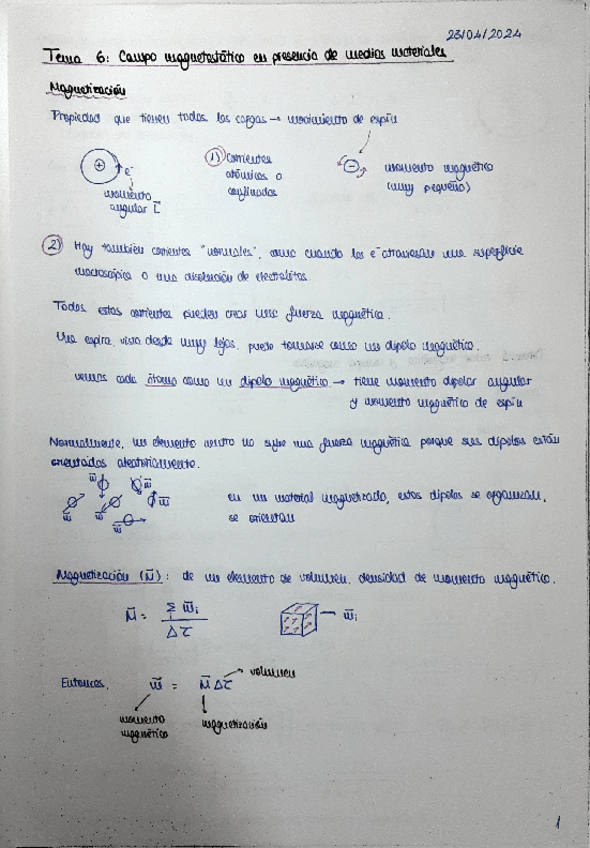 23/04/2024
Tema 6: Campo magnetostático en presencia de medios materiales
Magnetización
Propiedad que tienen todas las cargas → movimiento de espín
+
e⁻
momento
angular L̄
1) Corrientes
atómicas o
confinadas
−
momento magnético
(muy pequeño)
2) Hay también corrientes "normales", como cuando los e⁻ atraviesan una superficie
macroscópica o una disolución de electrolitos
Todas estas corrientes pueden crear una fuerza magnética.
Una espira, vista desde muy lejos, puede tomarse como un dipolo magnético.
vemos cada átomo como un dipolo magnético → tiene momento dipolar angular
y momento magnético de espín
Normalmente, un elemento neutro no sufre una fuerza magnética porque sus dipolos están
orientados aleatoriamente.
m̄ m̄ m̄ m̄ m̄ m̄
en un material magnetizado, estos dipolos se organizan,
se orientan
Magnetización (M̄): de un elemento de volumen, densidad de momento magnético.
M̄ = Σ m̄ᵢ / Δτ
m̄ᵢ
Entonces, m̄ = M̄ Δτ → volumen
momento
magnético
magnetización
1